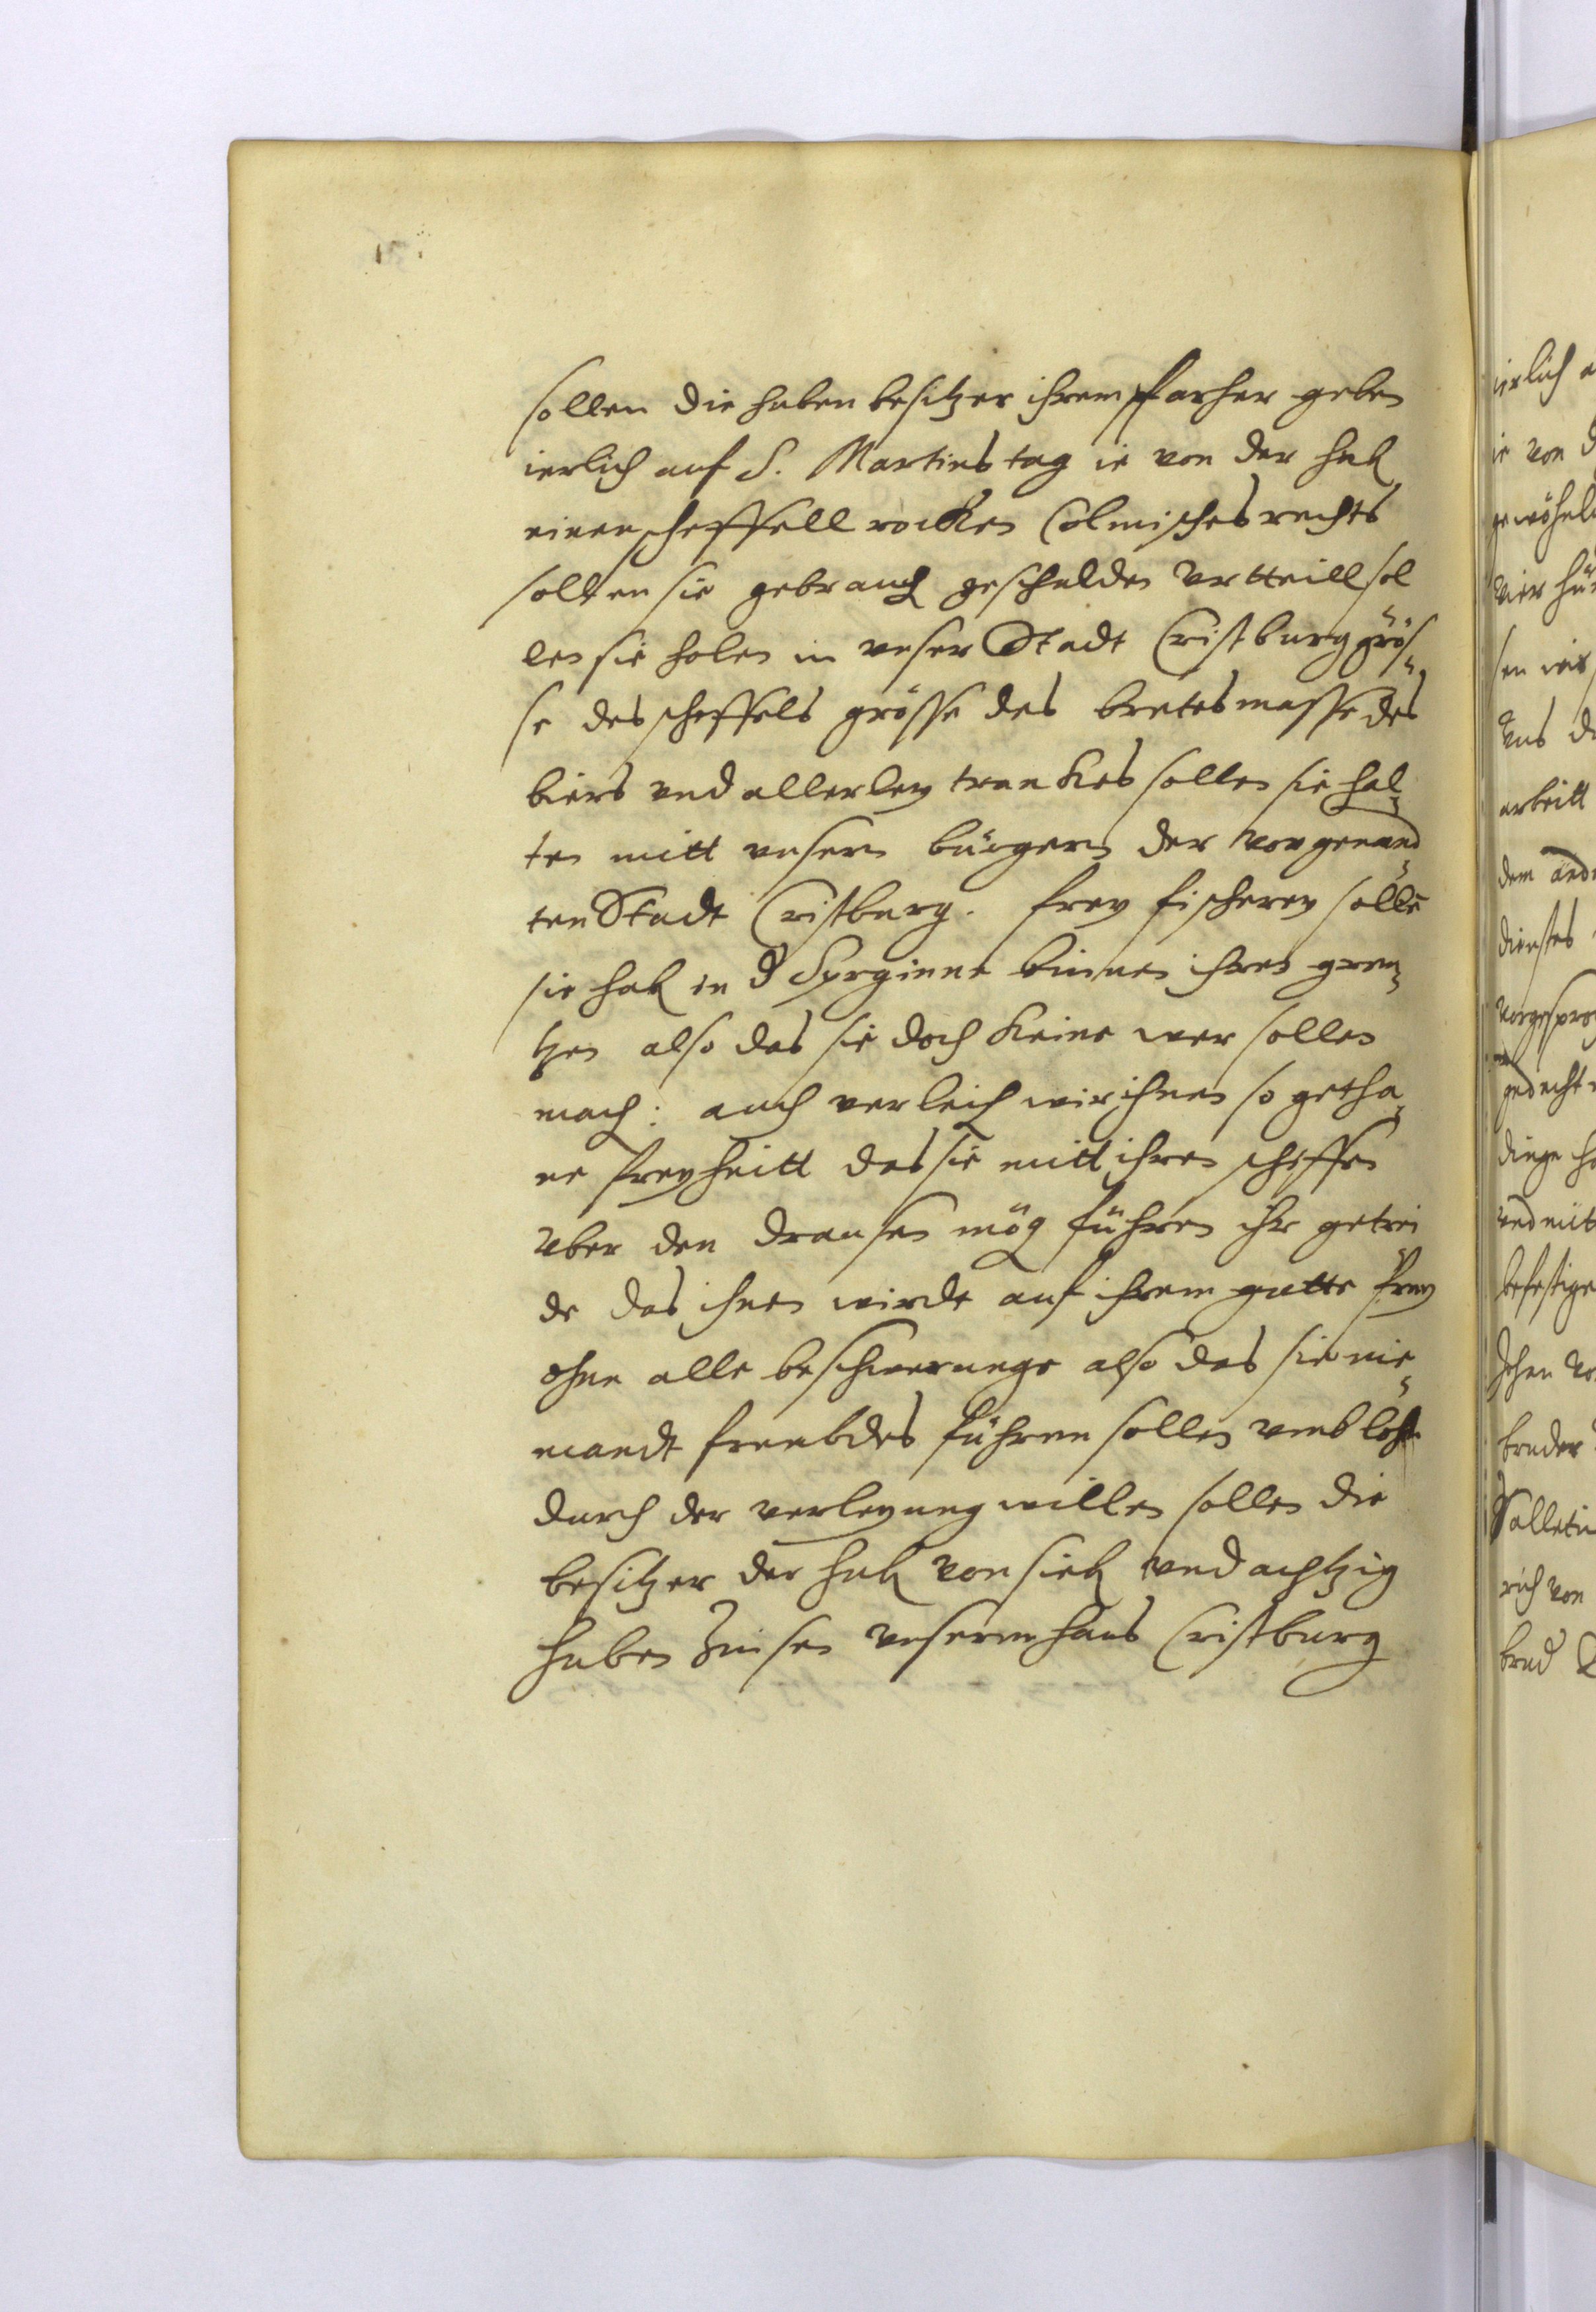 sollen die huben besitzer ihrem Pfarher geben
ierlich auf S. Martins tag ie von der hub
einen scheffell rocken Colmisches rechts
sollen sie gebrauch gescholden Urtteill sol
len sie holen in unser Stadt Cristburg grös-
se des scheffels grösse des brotes masse des
biers und allerley trankes sollen sie hal-
ten mitt unsern burgern der vorgenand-
ten Stadt Cristburg. frey fischerey solle
sie hab in d Syrginne binnen ihren gren-
tzen also das sie doch keine wer sollen
mach: auch verleich wir ihnen so getha-
ne freyheitt das sie mitt ihren scheffen
uber den Drausen mög führen ihr getrei
de das ihnen wirdt auf ihrem gutte frey
ohne alle beschwerunge also das sie nie-
mandt frembdes führen sollen umb lohn
durch der verleyung willen sollen die
besitzer der hub von sieb und achtzig
huben Zinsen unserm haus Cristburg
ierlich
ie von
gewöhnl
vier hü
sen wir
uns
arbeitt
dem and
dienstes
vorgespro
gedecht
dinge
und mit
befestige
bruder
rich von
brud